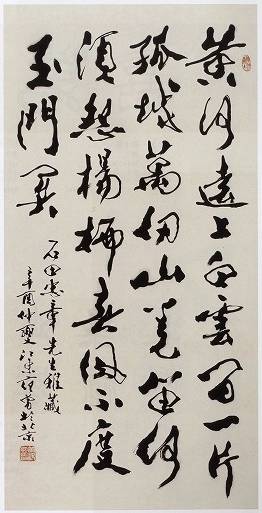 黄河遠上白雲間一片
孤城萬仞山羌笛何
須怨楊柳春風不度
玉門關
石田憲章先生雅藏
辛酉仲夏江東范曾於北京